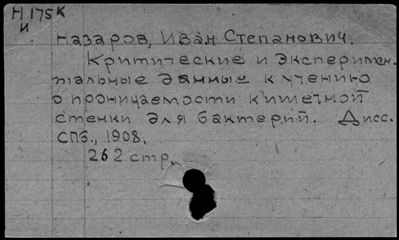 Н 175к
и
Назаров, Иван Степанович.
Критические и эксперимен-
тальные данные к учению
о проницаемости кишечной
стенки для бактерий. Дисс.
СПб., 1908.
262 стр.